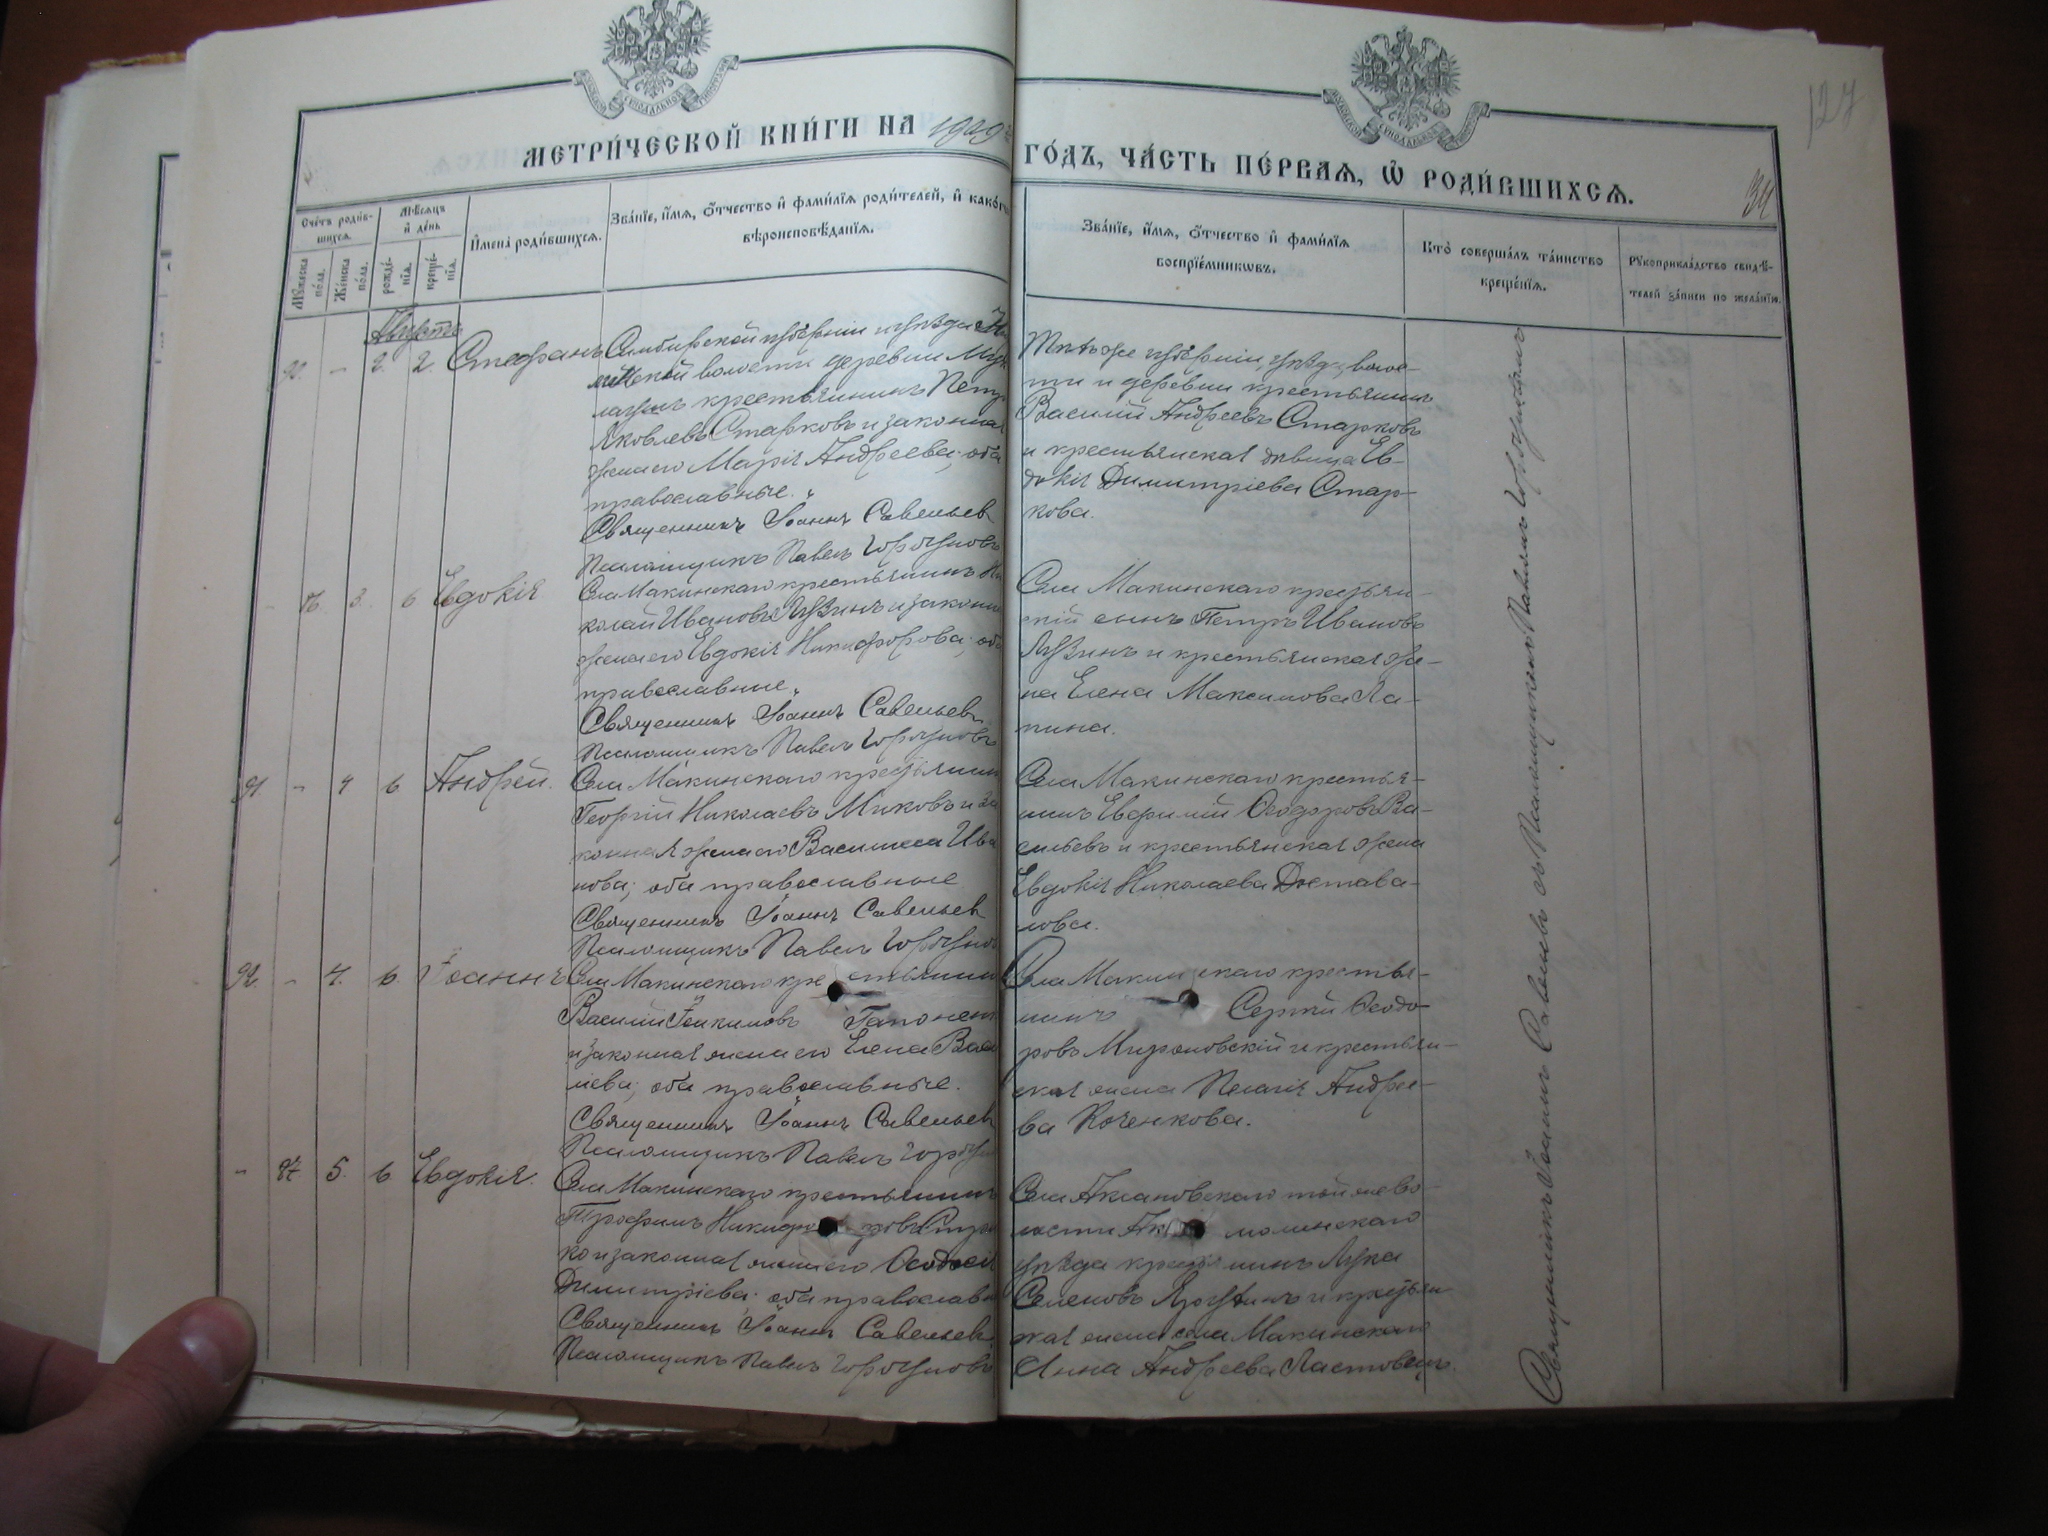 127
МЕТРИ́ЧЕСКОЙ КНИ́ГИ НА 1909 ГО́ДЪ, ЧА́СТЬ ПЕ́РВАѦ, Ѽ РОДИ́ВШИХСѦ.
34
Сче́тъ роди́в-
шихсѧ.
Мꙋ́жеска по́ла.
Же́нска по́ла.
Мѣ́сѧцъ и де́нь
рожде́-нїѧ.
креще́-нїѧ.
Имена̀ роди́вшихсѧ.
Зва́нїе, и́мѧ, ѻ́тчество и фами́лїѧ роди́телей, и како́гѡ
вѣроисповѣ́данїѧ.
Зва́нїе, и́мѧ, ѻ́тчество и фами́лїѧ
воспрїе́мникѡвъ.
Кто̀ соверша́лъ та́инство
креще́нїѧ.
Рꙋкоприкла́дство свидѣ́-
телей за́писи по жела́нїю.
Августъ
90. - 2. 2. Стефанъ
Симбирской губерніи и уѣзда
волости деревни
крестьянинъ Петр
Яковлевъ Старковъ и законная
жена его Марія Андреева; оба
православные.
Священникъ Іоаннъ Савельев
Псаломщикъ Павелъ Горбуновъ
Тѣхъ же губерніи, уѣзда, волос-
ти и деревни крестьянинъ
Василій Андреевъ Старковъ
и крестьянская дѣвица Ев-
докія Димитріева Стар-
кова.
- 86. 3. 6 Евдокія
Села Макинскаго крестьянинъ Ни
колай Ивановъ Лузинъ и законна
жена его Евдокія Никифорова; оба
православные.
Священникъ Іоаннъ Савельевъ
Псаломщикъ Павелъ Горбуновъ
Села Макинскаго крестьян-
скій сынъ Петръ Ивановъ
Лузинъ и крестьянская же-
на Елена Максимова Ла-
пина.
91 - 4 6 Андрей.
Села Макинскаго крестьянин
Георгій Николаевъ Миковъ и за
конная жена его Василисса Ива
нова; оба православные
Священникъ Іоаннъ Савельев
Псаломщикъ Павелъ Горбунов
Села Макинскаго крестья-
нинъ Евфимій Ѳеодоровъ Ва-
сильевъ и крестьянская жена
Евдокія Николаева Доставa-
лова.
92. - 4. 6. Іоаннъ
Села Макинскаго крестьянин
Василій Іоакимовъ Гапонен
и законная жена его Елена Васи
ліева; оба православные.
Священникъ Іоаннъ Савельев
Псаломщикъ Павелъ Горбун
Села Макинскаго крестья-
нинъ Сергій Ѳеодо-
ровъ Мироновскій и крестьян-
ская жена Пелагія Андрее-
ва Коченкова.
- 87. 5. 6 Евдокія.
Села Макинскаго крестьянинъ
Трофимъ Никифоровъ Стри
ко и законная жена его Ѳеодосія
Димитріева; оба православн
Священникъ Іоаннъ Савельев
Псаломщикъ Павелъ Горбуновъ
Села Аксановскаго той же во-
лости Акмолинскаго
уѣзда крестьянинъ Лука
Семеновъ и крестьян
ская жена села Макинскаго
Анна Андреева Ластовецъ.
Священникъ Іоаннъ Савельевъ съ Псаломщикомъ Павломъ Горбуновымъ